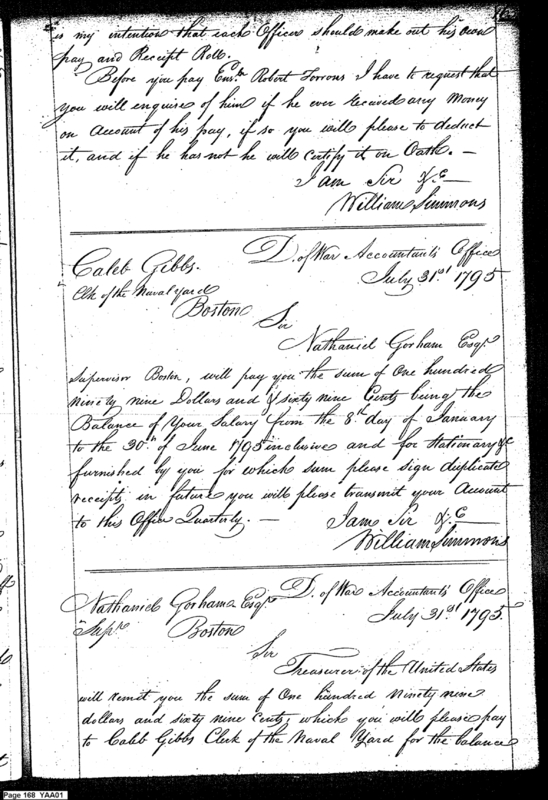 is my intention that each Officer should make out his own
pay and Receipt Roll.
Before you pay Ens.n Robert Torrons I have to request that
you will enquire of him if he ever received any Money
on Account of his pay, if so you will please to deduct
it, and if he has not he will certify it on Oath. —
I am Sir &.C
William Simmons
Caleb Gibbs.
D. of War Accountant's Office
July 31st 1795
Clk of the Naval Yard
Boston
Sir
Nathaniel Gorham Esqr
Supervisor Boston, will pay you the sum of One hundred
ninety nine Dollars and sixty nine Cents being the
Balance of Your Salary from the 8th day of January
to the 30th of June 1795 inclusive and for Stationary &c
furnished by you for which sum please sign duplicate
receipts, in future you will please transmit your Account
to this Office Quarterly. —
I am Sir &.C
William Simmons
Nathaniel Gorham Esqr
D. of War Accountant's Office
July 31st 1795.
Supr Boston
Sir
Treasurer of the United States
will remit you the sum of One hundred Ninety nine
dollars and sixty nine Cents, which you will please pay
to Caleb Gibbs Clerk of the Naval Yard for the balance
Page 168 YAA01